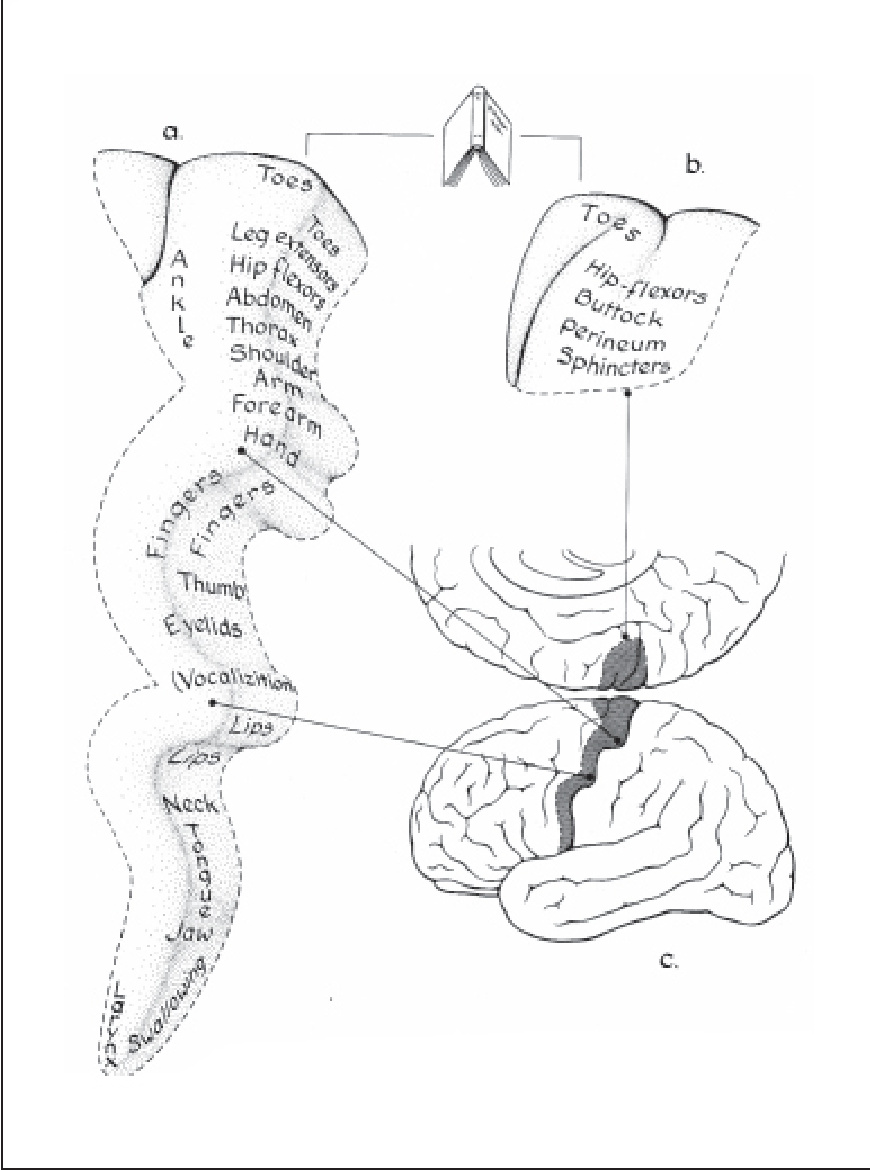 a.
b.
Toes
Toes
Leg extensors
Hip flexors
Abdomen
Thorax
Shoulder
Arm
Forearm
Hand
Ankle
Fingers
Fingers
Thumb
Eyelids
(Vocalizition)
Lips
Lips
Neck
Tongue
Jaw
Swallowing
Toes
Hip-flexors
Buttock
perineum
Sphincters
c.